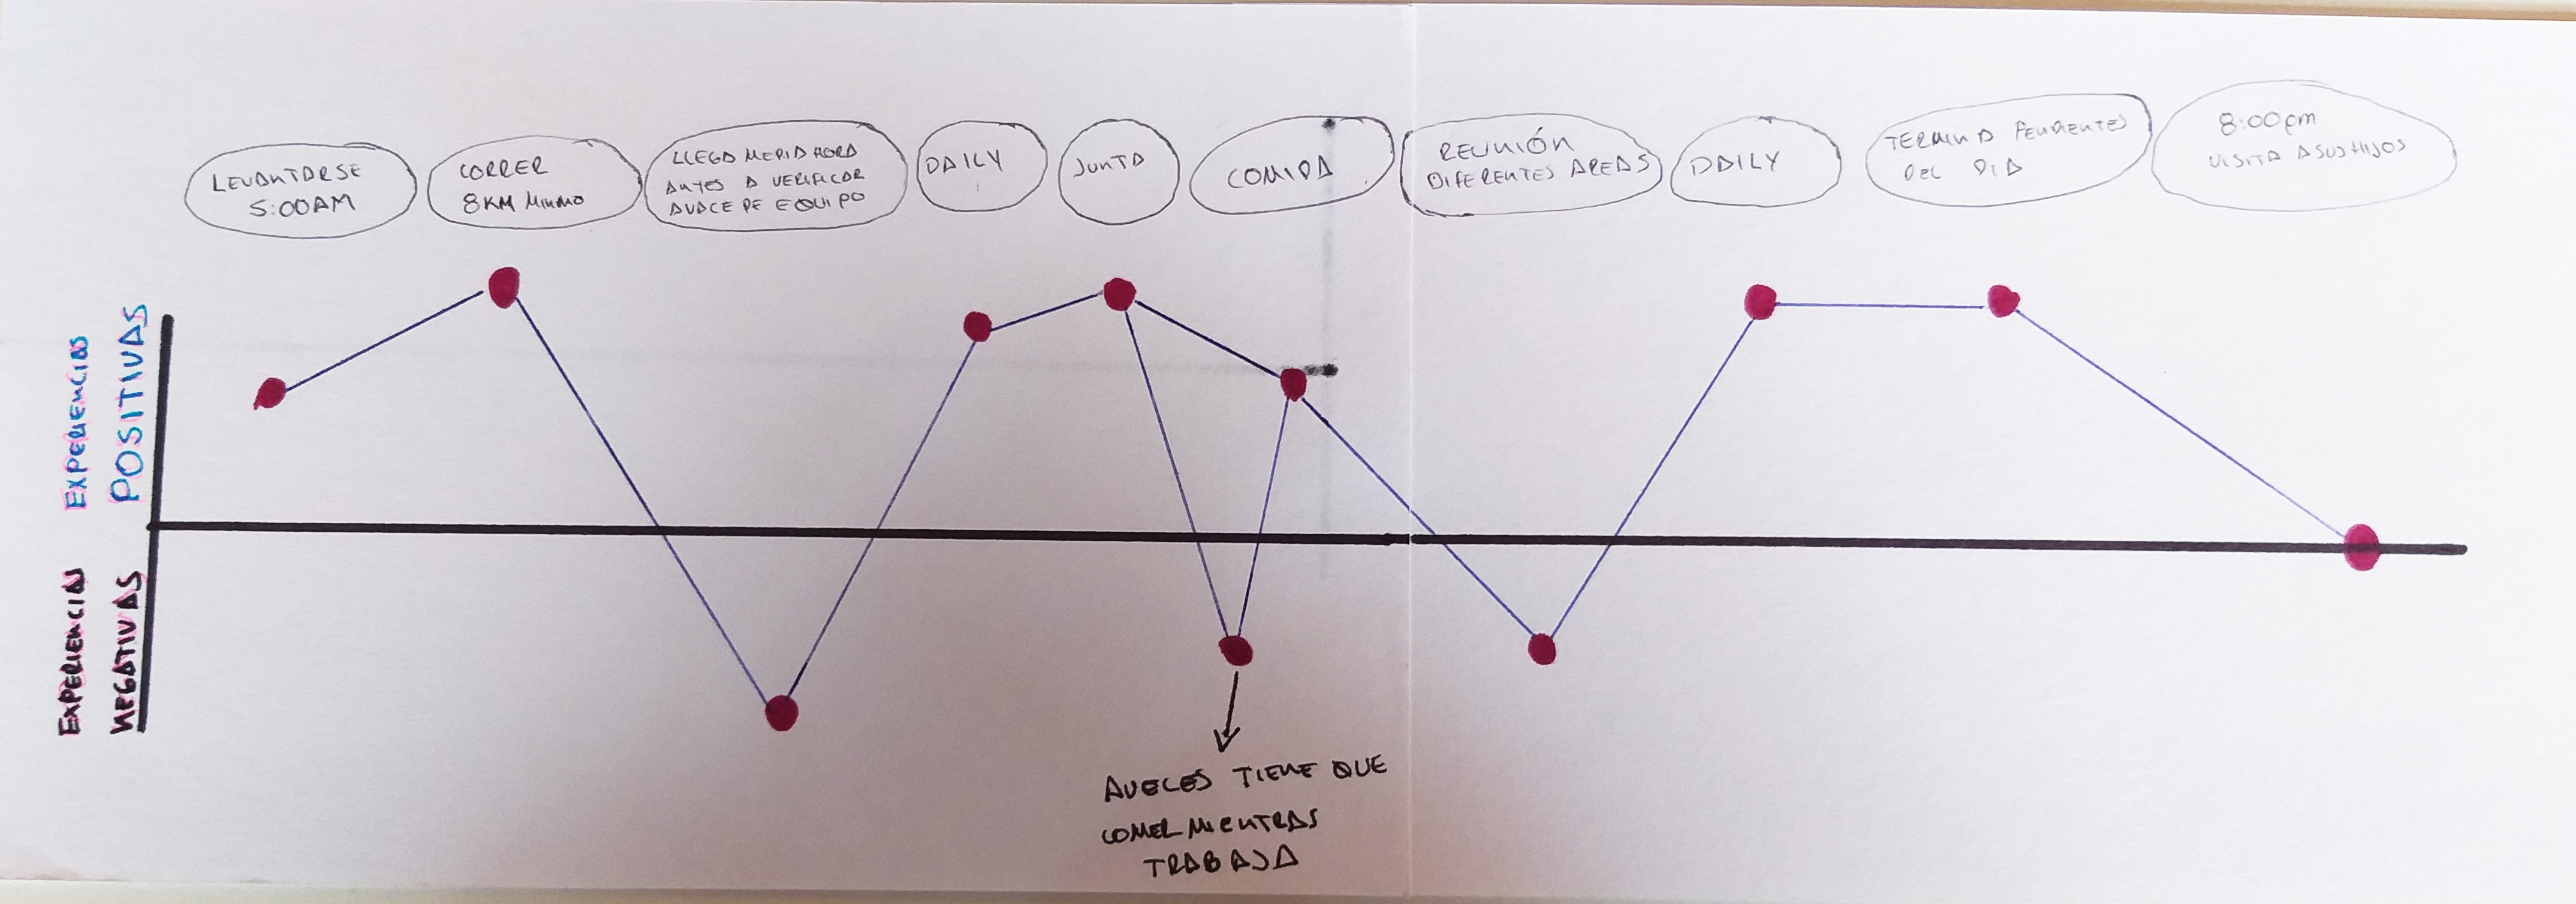 LEVANTARSE
5:00AM
CORRER
8KM MINIMO
LLEGA MEDIA HORA
ANTES A VERIFICAR
AVACE DE EQUIPO
DAILY
JUNTA
COMIDA
REUNIÓN
DIFERENTES AREAS
DAILY
TERMINA PENDIENTES
DEL DIA
8:00pm
VISITA A SUS HIJOS
EXPERIENCIAS
POSITIVAS
EXPERIENCIAS
NEGATIVAS
AVECES TIENE QUE
COMER MIENTRAS
TRABAJA